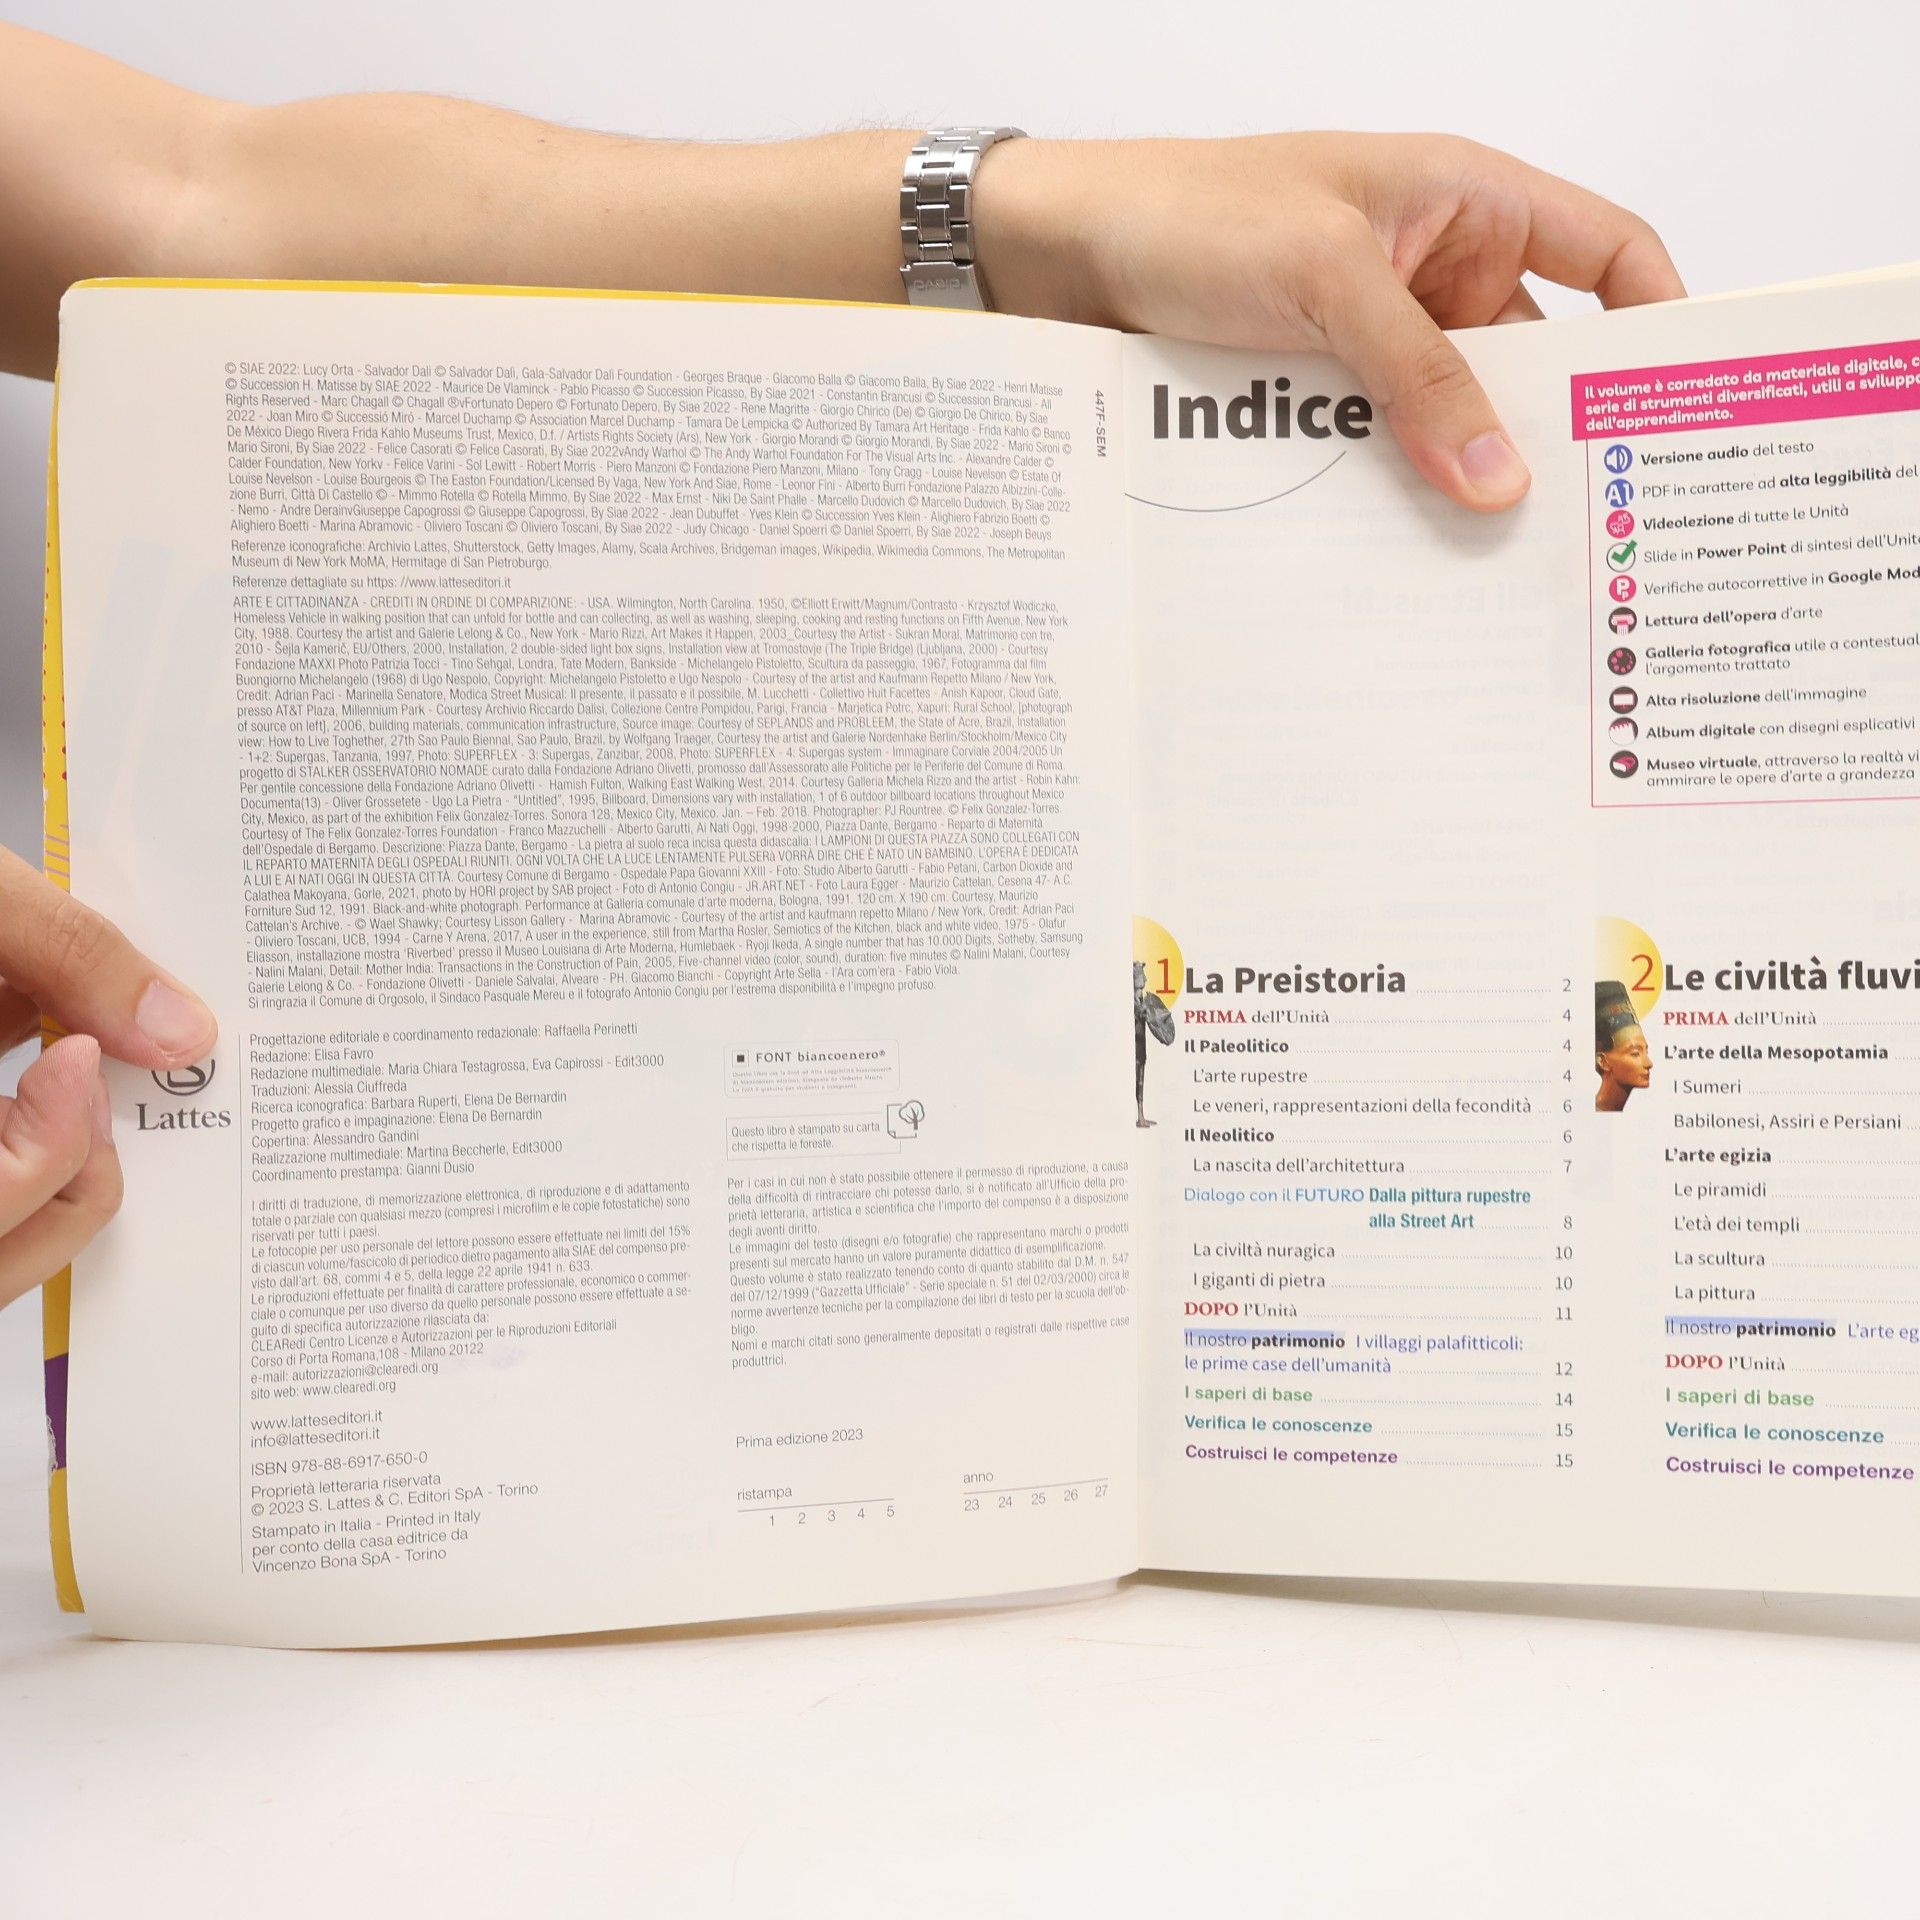 © SIAE 2022: Lucy Orta - Salvador Dalì © Salvador Dalì, Gala-Salvador Dalì Foundation - Georges Braque - Giacomo Balla © Giacomo Balla, By Siae 2022 - Henri Matisse
© Succession H. Matisse by SIAE 2022 - Maurice De Vlaminck - Pablo Picasso © Succession Picasso, By Siae 2021 - Constantin Brancusi © Succession Brancusi - All
Rights Reserved - Marc Chagall © Chagall ®vFortunato Depero © Fortunato Depero, By Siae 2022 - Rene Magritte - Giorgio Chirico (De) © Giorgio De Chirico, By Siae
2022 - Joan Miro © Successió Miró - Marcel Duchamp © Association Marcel Duchamp - Tamara De Lempicka © Authorized By Tamara Art Heritage - Frida Kahlo © Banco
De México Diego Rivera Frida Kahlo Museums Trust, Mexico, D.f. / Artists Rights Society (Ars), New York - Giorgio Morandi © Giorgio Morandi, By Siae 2022 - Mario Sironi ©
Mario Sironi, By Siae 2022 - Felice Casorati © Felice Casorati, By Siae 2022vAndy Warhol © The Andy Warhol Foundation For The Visual Arts Inc. - Alexandre Calder ©
Calder Foundation, New Yorkv - Felice Varini - Sol Lewitt - Robert Morris - Piero Manzoni © Fondazione Piero Manzoni, Milano - Tony Cragg - Louise Nevelson © Estate Of
Louise Nevelson - Louise Bourgeois © The Easton Foundation/Licensed By Vaga, New York And Siae, Rome - Leonor Fini - Alberto Burri Fondazione Palazzo Albizzini-Colle-
zione Burri, Città Di Castello © - Mimmo Rotella © Rotella Mimmo, By Siae 2022 - Max Ernst - Niki De Saint Phalle - Marcello Dudovich © Marcello Dudovich, By Siae 2022
- Nemo - Andre DerainvGiuseppe Capogrossi © Giuseppe Capogrossi, By Siae 2022 - Jean Dubuffet - Yves Klein © Succession Yves Klein - Alighiero Fabrizio Boetti ©
Alighiero Boetti - Marina Abramovic - Oliviero Toscani © Oliviero Toscani, By Siae 2022 - Judy Chicago - Daniel Spoerri © Daniel Spoerri, By Siae 2022 - Joseph Beuys
Referenze iconografiche: Archivio Lattes, Shutterstock, Getty Images, Alamy, Scala Archives, Bridgeman images, Wikipedia, Wikimedia Commons, The Metropolitan
Museum di New York MoMA, Hermitage di San Pietroburgo.
Referenze dettagliate su https: //www.latteseditori.it
ARTE E CITTADINANZA - CREDITI IN ORDINE DI COMPARIZIONE: - USA. Wilmington, North Carolina. 1950, ©Elliott Erwitt/Magnum/Contrasto - Krzysztof Wodiczko,
Homeless Vehicle in walking position that can unfold for bottle and can collecting, as well as washing, sleeping, cooking and resting functions on Fifth Avenue, New York
City, 1988. Courtesy the artist and Galerie Lelong & Co., New York - Mario Rizzi, Art Makes it Happen, 2003_Courtesy the Artist - Sukran Moral, Matrimonio con tre,
2010 - Šejla Kamerič, EU/Others, 2000, Installation, 2 double-sided light box signs, Installation view at Tromostovje (The Triple Bridge) (Ljubljana, 2000) - Courtesy
Fondazione MAXXI Photo Patrizia Tocci - Tino Sehgal, Londra, Tate Modern, Bankside - Michelangelo Pistoletto, Scultura da passeggio, 1967, Fotogramma dal film
Buongiorno Michelangelo (1968) di Ugo Nespolo, Copyright: Michelangelo Pistoletto e Ugo Nespolo - Courtesy of the artist and Kaufmann Repetto Milano / New York,
Credit: Adrian Paci - Marinella Senatore, Modica Street Musical: Il presente, il passato e il possibile, M. Lucchetti - Collettivo Huit Facettes - Anish Kapoor, Cloud Gate,
presso AT&T Plaza, Millennium Park - Courtesy Archivio Riccardo Dalisi, Collezione Centre Pompidou, Parigi, Francia - Marjetica Potrc, Xapuri: Rural School, [photograph
of source on left], 2006, building materials, communication infrastructure, Source image: Courtesy of SEPLANDS and PROBLEEM, the State of Acre, Brazil, Installation
view: How to Live Toghether, 27th Sao Paulo Biennal, Sao Paulo, Brazil, by Wolfgang Traeger, Courtesy the artist and Galerie Nordenhake Berlin/Stockholm/Mexico City
- 1+2: Supergas, Tanzania, 1997, Photo: SUPERFLEX - 3: Supergas, Zanzibar, 2008, Photo: SUPERFLEX - 4: Supergas system - Immaginare Corviale 2004/2005 Un
progetto di STALKER OSSERVATORIO NOMADE curato dalla Fondazione Adriano Olivetti, promosso dall'Assessorato alle Politiche per le Periferie del Comune di Roma.
Per gentile concessione della Fondazione Adriano Olivetti - Hamish Fulton, Walking East Walking West, 2014. Courtesy Galleria Michela Rizzo and the artist - Robin Kahn:
Documenta(13) - Oliver Grossetete - Ugo La Pietra - "Untitled", 1995, Billboard, Dimensions vary with installation, 1 of 6 outdoor billboard locations throughout Mexico
City, Mexico, as part of the exhibition Felix Gonzalez-Torres. Sonora 128, Mexico City, Mexico. Jan. – Feb. 2018. Photographer: PJ Rountree. © Felix Gonzalez-Torres.
Courtesy of The Felix Gonzalez-Torres Foundation - Franco Mazzuchelli - Alberto Garutti, Ai Nati Oggi, 1998-2000, Piazza Dante, Bergamo - Reparto di Maternità
dell'Ospedale di Bergamo. Descrizione: Piazza Dante, Bergamo - La pietra al suolo reca incisa questa didascalia: I LAMPIONI DI QUESTA PIAZZA SONO COLLEGATI CON
IL REPARTO MATERNITÀ DEGLI OSPEDALI RIUNITI. OGNI VOLTA CHE LA LUCE LENTAMENTE PULSERÀ VORRÀ DIRE CHE È NATO UN BAMBINO. L'OPERA È DEDICATA
A LUI E AI NATI OGGI IN QUESTA CITTÀ. Courtesy Comune di Bergamo - Ospedale Papa Giovanni XXIII - Foto: Studio Alberto Garutti - Fabio Petani, Carbon Dioxide and
Calathea Makoyana, Gorle, 2021, photo by HORI project by SAB project - Foto di Antonio Congiu - JR.ART.NET - Foto Laura Egger - Maurizio Cattelan, Cesena 47- A.C.
Forniture Sud 12, 1991. Black-and-white photograph. Performance at Galleria comunale d'arte moderna, Bologna, 1991. 120 cm. X 190 cm. Courtesy, Maurizio
Cattelan's Archive. - © Wael Shawky; Courtesy Lisson Gallery - Marina Abramovic - Courtesy of the artist and kaufmann repetto Milano / New York, Credit: Adrian Paci
- Oliviero Toscani, UCB, 1994 - Carne Y Arena, 2017, A user in the experience, still from Martha Rosler, Semiotics of the Kitchen, black and white video, 1975 - Olafur
Eliasson, installazione mostra 'Riverbed' presso il Museo Louisiana di Arte Moderna, Humlebaek - Ryoji Ikeda, A single number that has 10.000 Digits, Sotheby, Samsung
- Nalini Malani, Detail: Mother India: Transactions in the Construction of Pain, 2005, Five-channel video (color, sound), duration: five minutes © Nalini Malani, Courtesy
Galerie Lelong & Co. - Fondazione Olivetti - Daniele Salvalai, Alveare - PH. Giacomo Bianchi - Copyright Arte Sella - l'Ara com'era - Fabio Viola.
Si ringrazia il Comune di Orgosolo, il Sindaco Pasquale Mereu e il fotografo Antonio Congiu per l'estrema disponibilità e l'impegno profuso.
447F-SEM
Lattes
Progettazione editoriale e coordinamento redazionale: Raffaella Perinetti
Redazione: Elisa Favro
Redazione multimediale: Maria Chiara Testagrossa, Eva Capirossi - Edit3000
Traduzioni: Alessia Ciuffreda
Ricerca iconografica: Barbara Ruperti, Elena De Bernardin
Progetto grafico e impaginazione: Elena De Bernardin
Copertina: Alessandro Gandini
Realizzazione multimediale: Martina Beccherle, Edit3000
Coordinamento prestampa: Gianni Dusio
I diritti di traduzione, di memorizzazione elettronica, di riproduzione e di adattamento
totale o parziale con qualsiasi mezzo (compresi i microfilm e le copie fotostatiche) sono
riservati per tutti i paesi.
Le fotocopie per uso personale del lettore possono essere effettuate nei limiti del 15%
di ciascun volume/fascicolo di periodico dietro pagamento alla SIAE del compenso pre-
visto dall'art. 68, commi 4 e 5, della legge 22 aprile 1941 n. 633.
Le riproduzioni effettuate per finalità di carattere professionale, economico o commer-
ciale o comunque per uso diverso da quello personale possono essere effettuate a se-
guito di specifica autorizzazione rilasciata da:
CLEARedi Centro Licenze e Autorizzazioni per le Riproduzioni Editoriali
Corso di Porta Romana,108 - Milano 20122
e-mail: autorizzazioni@clearedi.org
sito web: www.clearedi.org
www.latteseditori.it
info@latteseditori.it
ISBN 978-88-6917-650-0
Proprietà letteraria riservata
© 2023 S. Lattes & C. Editori SpA - Torino
Stampato in Italia - Printed in Italy
per conto della casa editrice da
Vincenzo Bona SpA - Torino
FONT biancoenero®
Questo libro è stampato su carta
che rispetta le foreste.
Per i casi in cui non è stato possibile ottenere il permesso di riproduzione, a causa
della difficoltà di rintracciare chi potesse darlo, si è notificato all'Ufficio della pro-
prietà letteraria, artistica e scientifica che l'importo del compenso è a disposizione
degli aventi diritto.
Le immagini del testo (disegni e/o fotografie) che rappresentano marchi o prodotti
presenti sul mercato hanno un valore puramente didattico di esemplificazione.
Questo volume è stato realizzato tenendo conto di quanto stabilito dal D.M. n. 547
del 07/12/1999 ("Gazzetta Ufficiale" - Serie speciale n. 51 del 02/03/2000) circa le
norme avvertenze tecniche per la compilazione dei libri di testo per la scuola dell'ob-
bligo.
Nomi e marchi citati sono generalmente depositati o registrati dalle rispettive case
produttrici.
Prima edizione 2023
ristampa
1 2 3 4 5
anno
23 24 25 26 27
CASIO
Indice
Il volume è corredato da materiale digitale, c
serie di strumenti diversificati, utili a sviluppa
dell'apprendimento.
Versione audio del testo
A1 PDF in carattere ad alta leggibilità del
Videolezione di tutte le Unità
Slide in Power Point di sintesi dell'Unità
Verifiche autocorrettive in Google Mod
Lettura dell'opera d'arte
Galleria fotografica utile a contestual
l'argomento trattato
Alta risoluzione dell'immagine
Album digitale con disegni esplicativi
Museo virtuale, attraverso la realtà vi
ammirare le opere d'arte a grandezza
1 La Preistoria 2
PRIMA dell'Unità 4
Il Paleolitico 4
L'arte rupestre 4
Le veneri, rappresentazioni della fecondità 6
Il Neolitico 6
La nascita dell'architettura 7
Dialogo con il FUTURO Dalla pittura rupestre
alla Street Art 8
La civiltà nuragica 10
I giganti di pietra 10
DOPO l'Unità 11
Il nostro patrimonio I villaggi palafitticoli:
le prime case dell'umanità 12
I saperi di base 14
Verifica le conoscenze 15
Costruisci le competenze 15
2 Le civiltà fluvi
PRIMA dell'Unità
L'arte della Mesopotamia
I Sumeri
Babilonesi, Assiri e Persiani
L'arte egizia
Le piramidi
L'età dei templi
La scultura
La pittura
Il nostro patrimonio L'arte eg
DOPO l'Unità
I saperi di base
Verifica le conoscenze
Costruisci le competenze